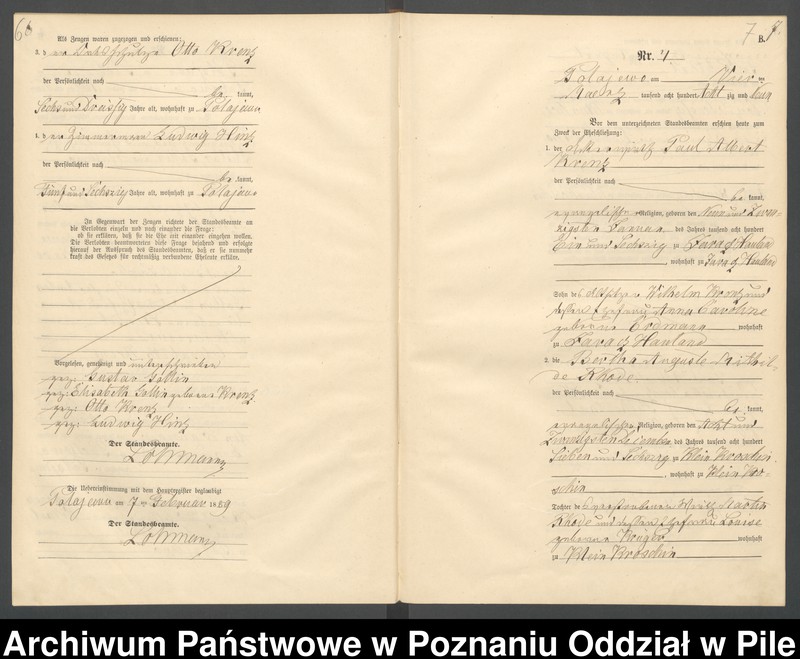 6
Als Zeugen waren zugezogen und erschienen:
3. der Ortsschulze Otto Krenz
der Persönlichkeit nach
be kannt,
Sechs und Dreissig Jahre alt, wohnhaft zu Polajewo
4. der Zimmermann Ludwig Hinz
der Persönlichkeit nach
be kannt,
Fünf und Sechszig Jahre alt, wohnhaft zu Polajewo
In Gegenwart der Zeugen richtete der Standesbeamte an
die Verlobten einzeln und nach einander die Frage:
ob sie erklären, daß sie die Ehe mit einander eingehen wollen.
Die Verlobten beantworteten diese Frage bejahend und erfolgte
hierauf der Ausspruch des Standesbeamten, daß er sie nunmehr
kraft des Gesetzes für rechtmäßig verbundene Eheleute erkläre.
Vorgelesen, genehmigt und unterschrieben
gez: Gustav
gez: Elisabeth geborene Krenz
gez: Otto Krenz
gez: Ludwig Hinz
Der Standesbeamte.
Lohmann
Die Uebereinstimmung mit dem Hauptregister beglaubigt
Polajewo am 7ten Februar 1889
Der Standesbeamte.
Lohmann
7
B.
Nr. 4
Polajewo am Vier ten
Maerz tausend acht hundert Acht zig und Neun
Vor dem unterzeichneten Standesbeamten erschien heute zum
Zweck der Eheschließung:
1. der Paul Albert
Krenz
der Persönlichkeit nach
be kannt,
evangelischer Religion, geboren den Neun und Zwan-
zigsten Januar des Jahres tausend acht hundert
Ein und Sechszig zu Hauland
, wohnhaft zu Hauland
Sohn des Wilhelm Krenz und
dessen Ehefrau Anna Caroline
geborene Erdmann wohnhaft
zu Hauland
2. die Bertha Auguste Mathil-
de Rhode
der Persönlichkeit nach
be kannt,
evangelischer Religion, geboren den Acht und
Zwanzigsten December des Jahres tausend acht hundert
Sieben und Sechszig zu Klein Kroschin
, wohnhaft zu Klein Kro-
schin
Tochter des Martin
Rhode und dessen Ehefrau Louise
geborene Krüger wohnhaft
zu Klein Kroschin
Archiwum Państwowe w Poznaniu Oddział w Pile